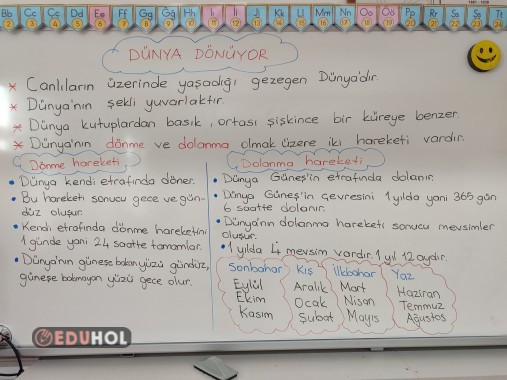 Bb Cc Çç Dd Ee Ff Gg Ğğ Hh Iı İi Jj Kk Ll Mm Nn Oo Öö Pp Rr Ss Şş Tt
DÜNYA DÖNÜYOR
* Canlıların üzerinde yaşadığı gezegen Dünya'dır.
* Dünya'nın şekli yuvarlaktır.
* Dünya kutuplardan basık, ortası şişkince bir küreye benzer.
* Dünya'nın dönme ve dolanma olmak üzere iki hareketi vardır.
Dönme hareketi
• Dünya kendi etrafında döner.
• Bu hareketi sonucu gece ve gün-
düz oluşur.
• Kendi etrafında dönme hareketini
1 günde yani 24 saatte tamamlar.
• Dünya'nın güneşe bakan yüzü gündüz,
güneşe bakmayan yüzü gece olur.
Dolanma hareketi
• Dünya Güneş'in etrafında dolanır.
• Dünya Güneş'in çevresini 1 yılda yani 365 gün
6 saatte dolanır.
• Dünya'nın dolanma hareketi sonucu mevsimler
oluşur.
• 1 yılda 4 mevsim vardır. 1 yıl 12 aydır.
Sonbahar Kış İlkbahar Yaz
Eylül Aralık Mart Haziran
Ekim Ocak Nisan Temmuz
Kasım Şubat Mayıs Ağustos
EDUHOL